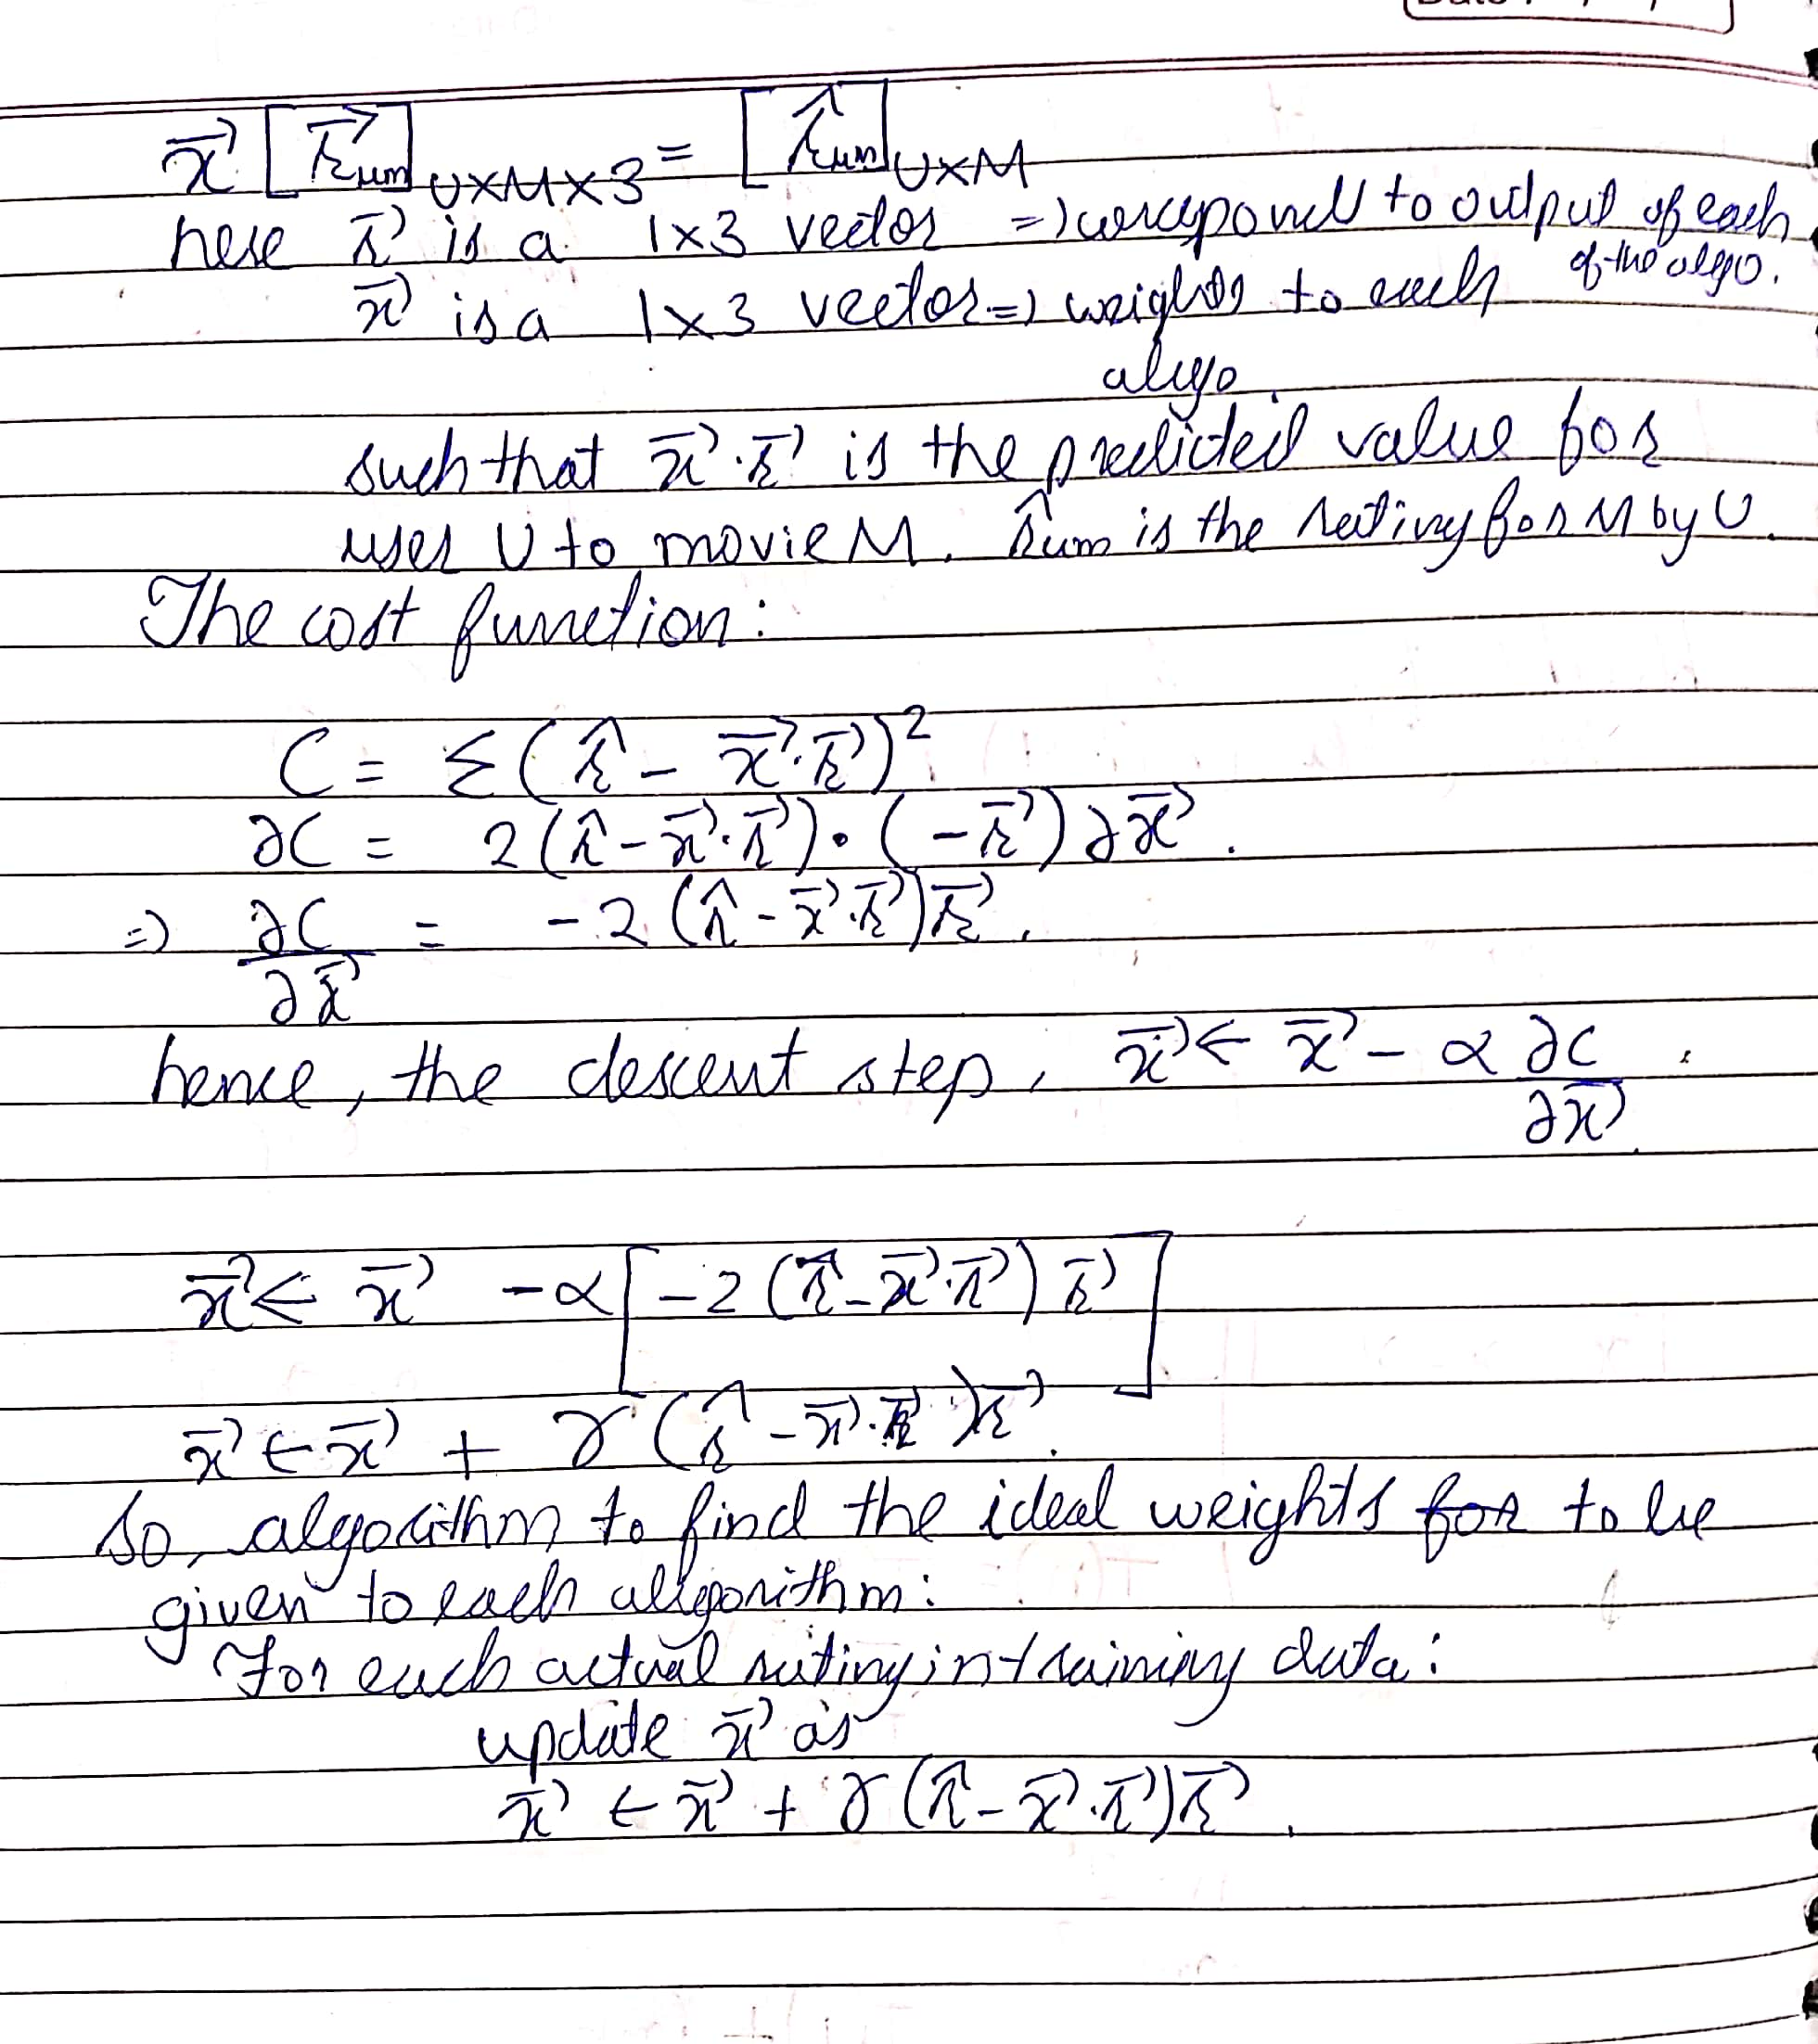 Date :
x⃗ [r⃗um]U×M×3 = [r̂um]U×M
here r⃗ is a 1×3 vector => correspond to output of each of the algo.
x⃗ is a 1×3 vector => weights to each
algo
such that x⃗·r⃗ is the predicted value for
user U to movie M. r̂um is the rating for M by U.
The cost function:
C = Σ(r̂ - x⃗·r⃗)²
∂C = 2(r̂ - x⃗·r⃗)·(-r⃗)∂x⃗.
=> ∂C/∂x⃗ = -2(r̂ - x⃗·r⃗)r⃗.
hence, the descent step, x⃗ ← x⃗ - α ∂C/∂x⃗.
x⃗ ← x⃗ - α[-2(r̂ - x⃗·r⃗)r⃗]
x⃗ ← x⃗ + γ(r̂ - x⃗·r⃗)r⃗.
So, algorithm to find the ideal weights for to be
given to each algorithm:
For each actual rating in training data:
update x⃗ as
x⃗ ← x⃗ + γ(r̂ - x⃗·r⃗)r⃗.